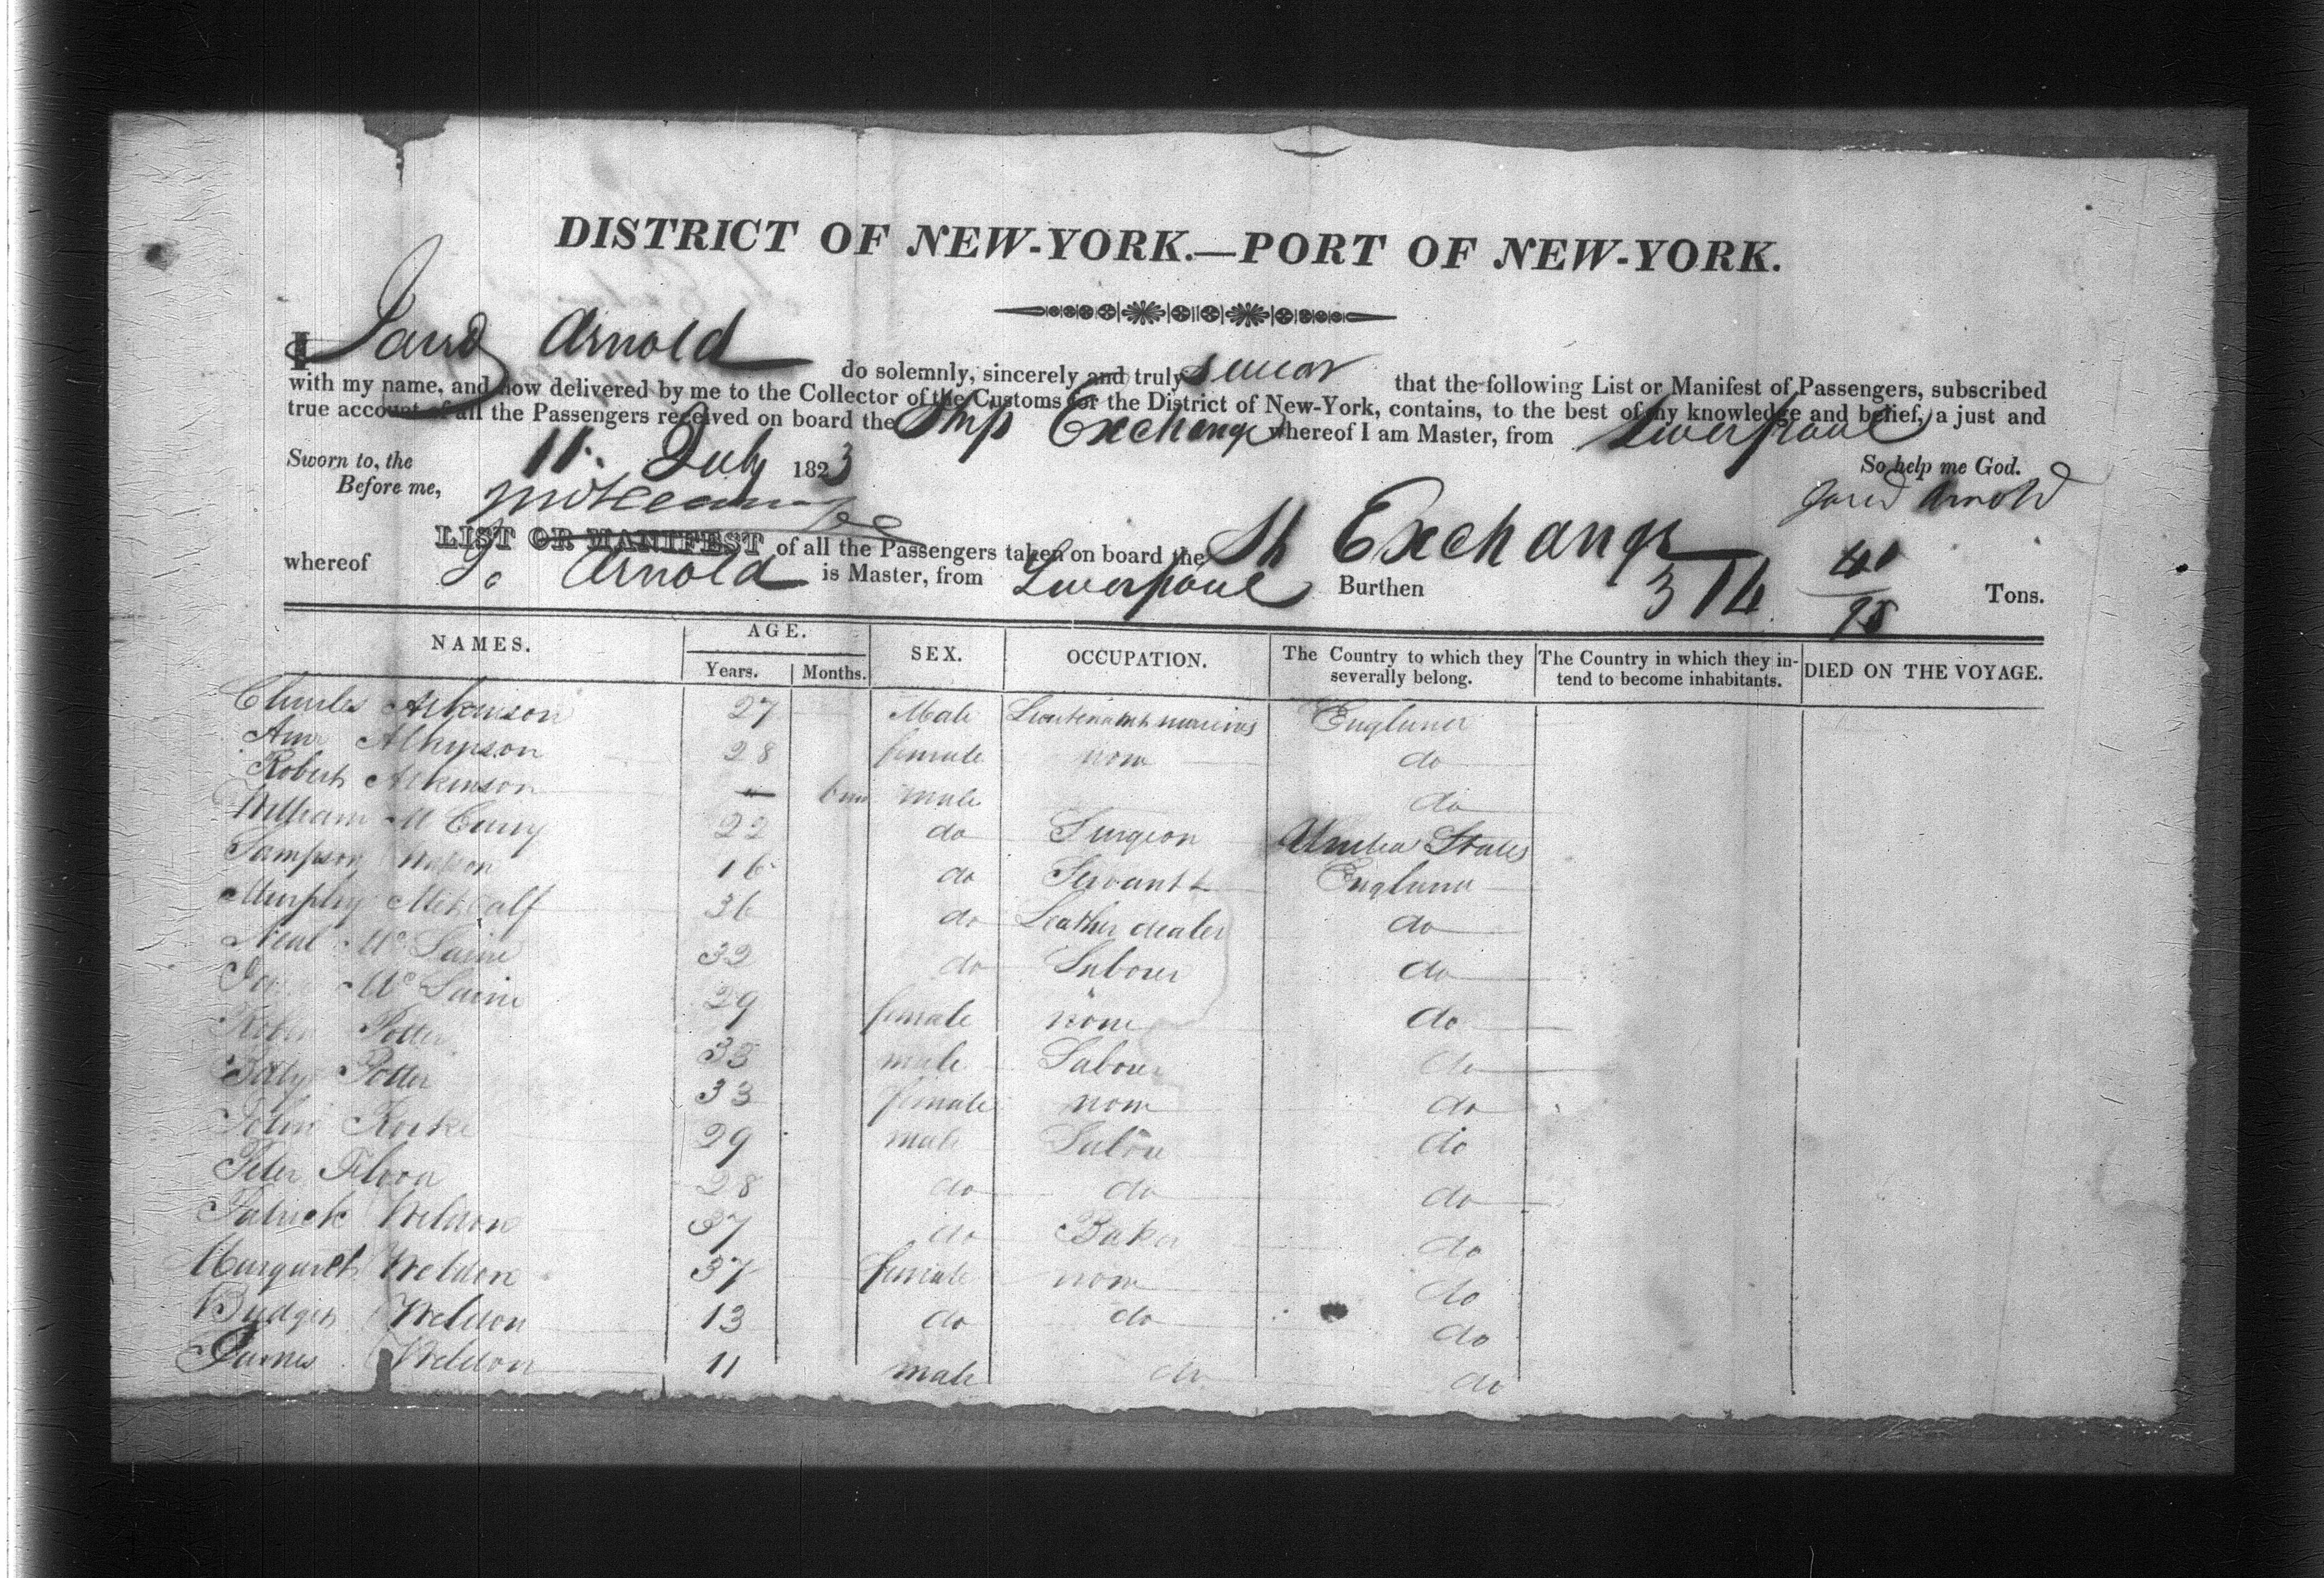 DISTRICT OF NEW-YORK.—PORT OF NEW-YORK.
I Jared Arnold do solemnly, sincerely and truly swear that the following List or Manifest of Passengers, subscribed
with my name, and now delivered by me to the Collector of the Customs for the District of New-York, contains, to the best of my knowledge and belief, a just and
true account of all the Passengers received on board the Ship Exchange whereof I am Master, from Liverpool
Sworn to, the 11. July 1823 So help me God.
Before me, Jared Arnold
LIST OR MANIFEST of all the Passengers taken on board the Sh Exchange
whereof Arnold is Master, from Liverpool Burthen 314 41/95 Tons.
NAMES. AGE. SEX. OCCUPATION. The Country to which they severally belong. The Country in which they intend to become inhabitants. DIED ON THE VOYAGE.
Years. Months.
Charles Atkinson 27 Male Lieutenant marines England
Ann Atkinson 28 female none do
Robert Atkinson 6 male do
William 22 do Surgeon United States
Sampson 16 do Servant England
Murphy Metcalf 36 do Leather dealer do
Neal McLaine 32 do Labour do
McLaine 29 female none do
Potter 33 male Labour do
Potter 33 female none do
John Rorke 29 male Labour do
Peter Flora 28 do do do
Patrick Weldon 37 do Baker do
Margaret Weldon 37 female none do
Bridget Weldon 13 do do do
James Weldon 11 male do do